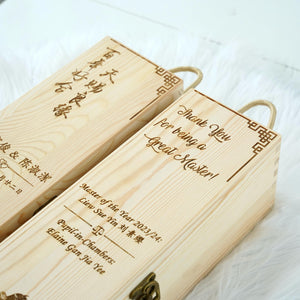 百年好合
天賜良緣
& 陳淑
Thank You
for being a
Great Master!
Master of the Year 2023/24:
Liew Sue Yin 刘素
Pupil-in-Chambers:
Elaine Gan Jia Yee